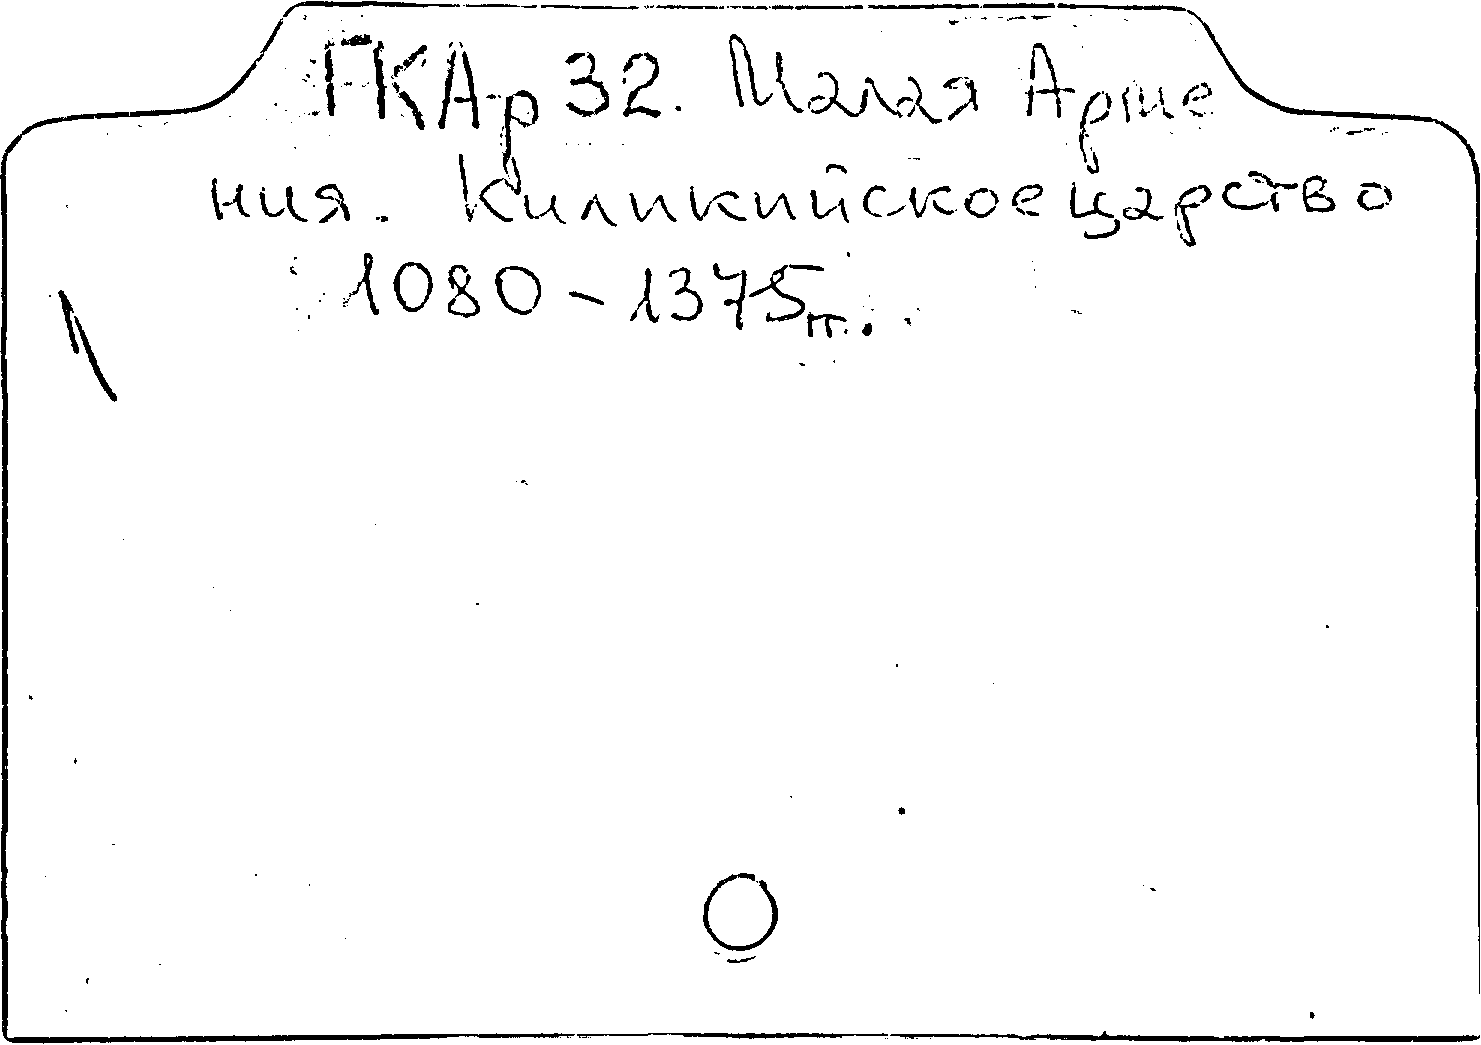 ГКАр 32. Малая Арме
ния. Киликийское царство
1080 – 1375 гг.